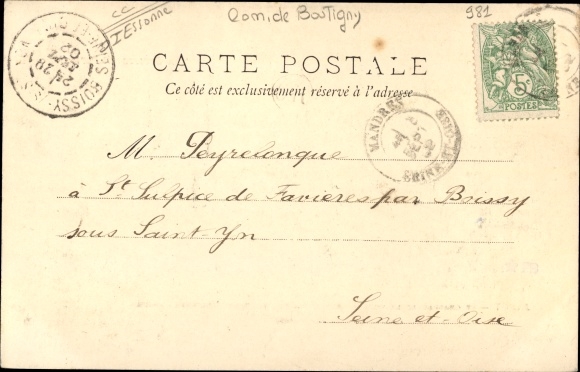 CC
Essonne
Com. de Boutigny
981
CARTE POSTALE
Ce côté est exclusivement réservé à l'adresse
5c
POSTES
MANDRES
SEINE-ET-OISE
M. Peyrelongue
à St Sulpice de Favières par Brissy
sous Saint-Yn
Seine-et-Oise